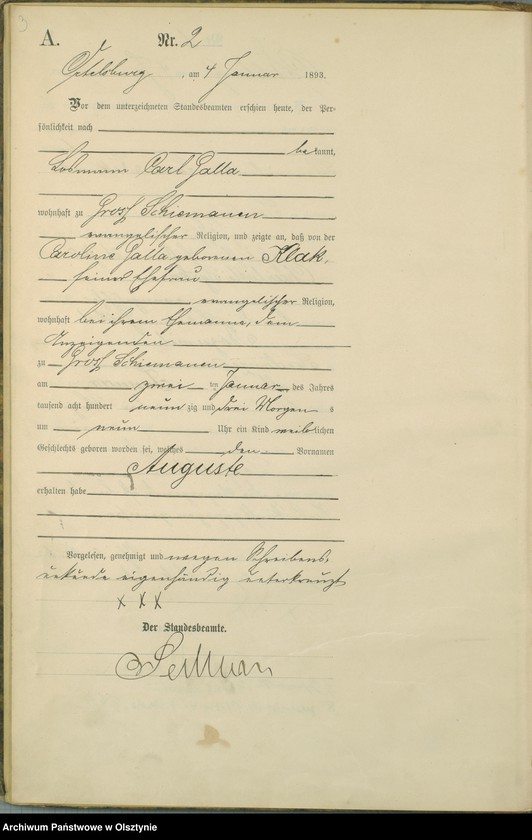 3
A.
Nr. 2
Ortelsburg, am 4 Januar 1893.
Vor dem unterzeichneten Standesbeamten erschien heute, der Per-
sönlichkeit nach
bekannt,
Losmann Carl Galla
wohnhaft zu Groß Schiemanen
evangelischer Religion, und zeigte an, daß von der
Caroline Galla geborenen Klak,
seiner Ehefrau
evangelischer Religion,
wohnhaft bei ihrem Ehemanne, dem
Anzeigenden
zu Groß Schiemanen
am zwei ten Januar des Jahres
tausend acht hundert neunzig und drei Morgens
um neun Uhr ein Kind weiblichen
Geschlechts geboren worden sei, welches den Vornamen
Auguste
erhalten habe
Vorgelesen, genehmigt und wegen Schreibens-
unkunde eigenhändig unterkreuzt
x x x
Der Standesbeamte.
Archiwum Państwowe w Olsztynie